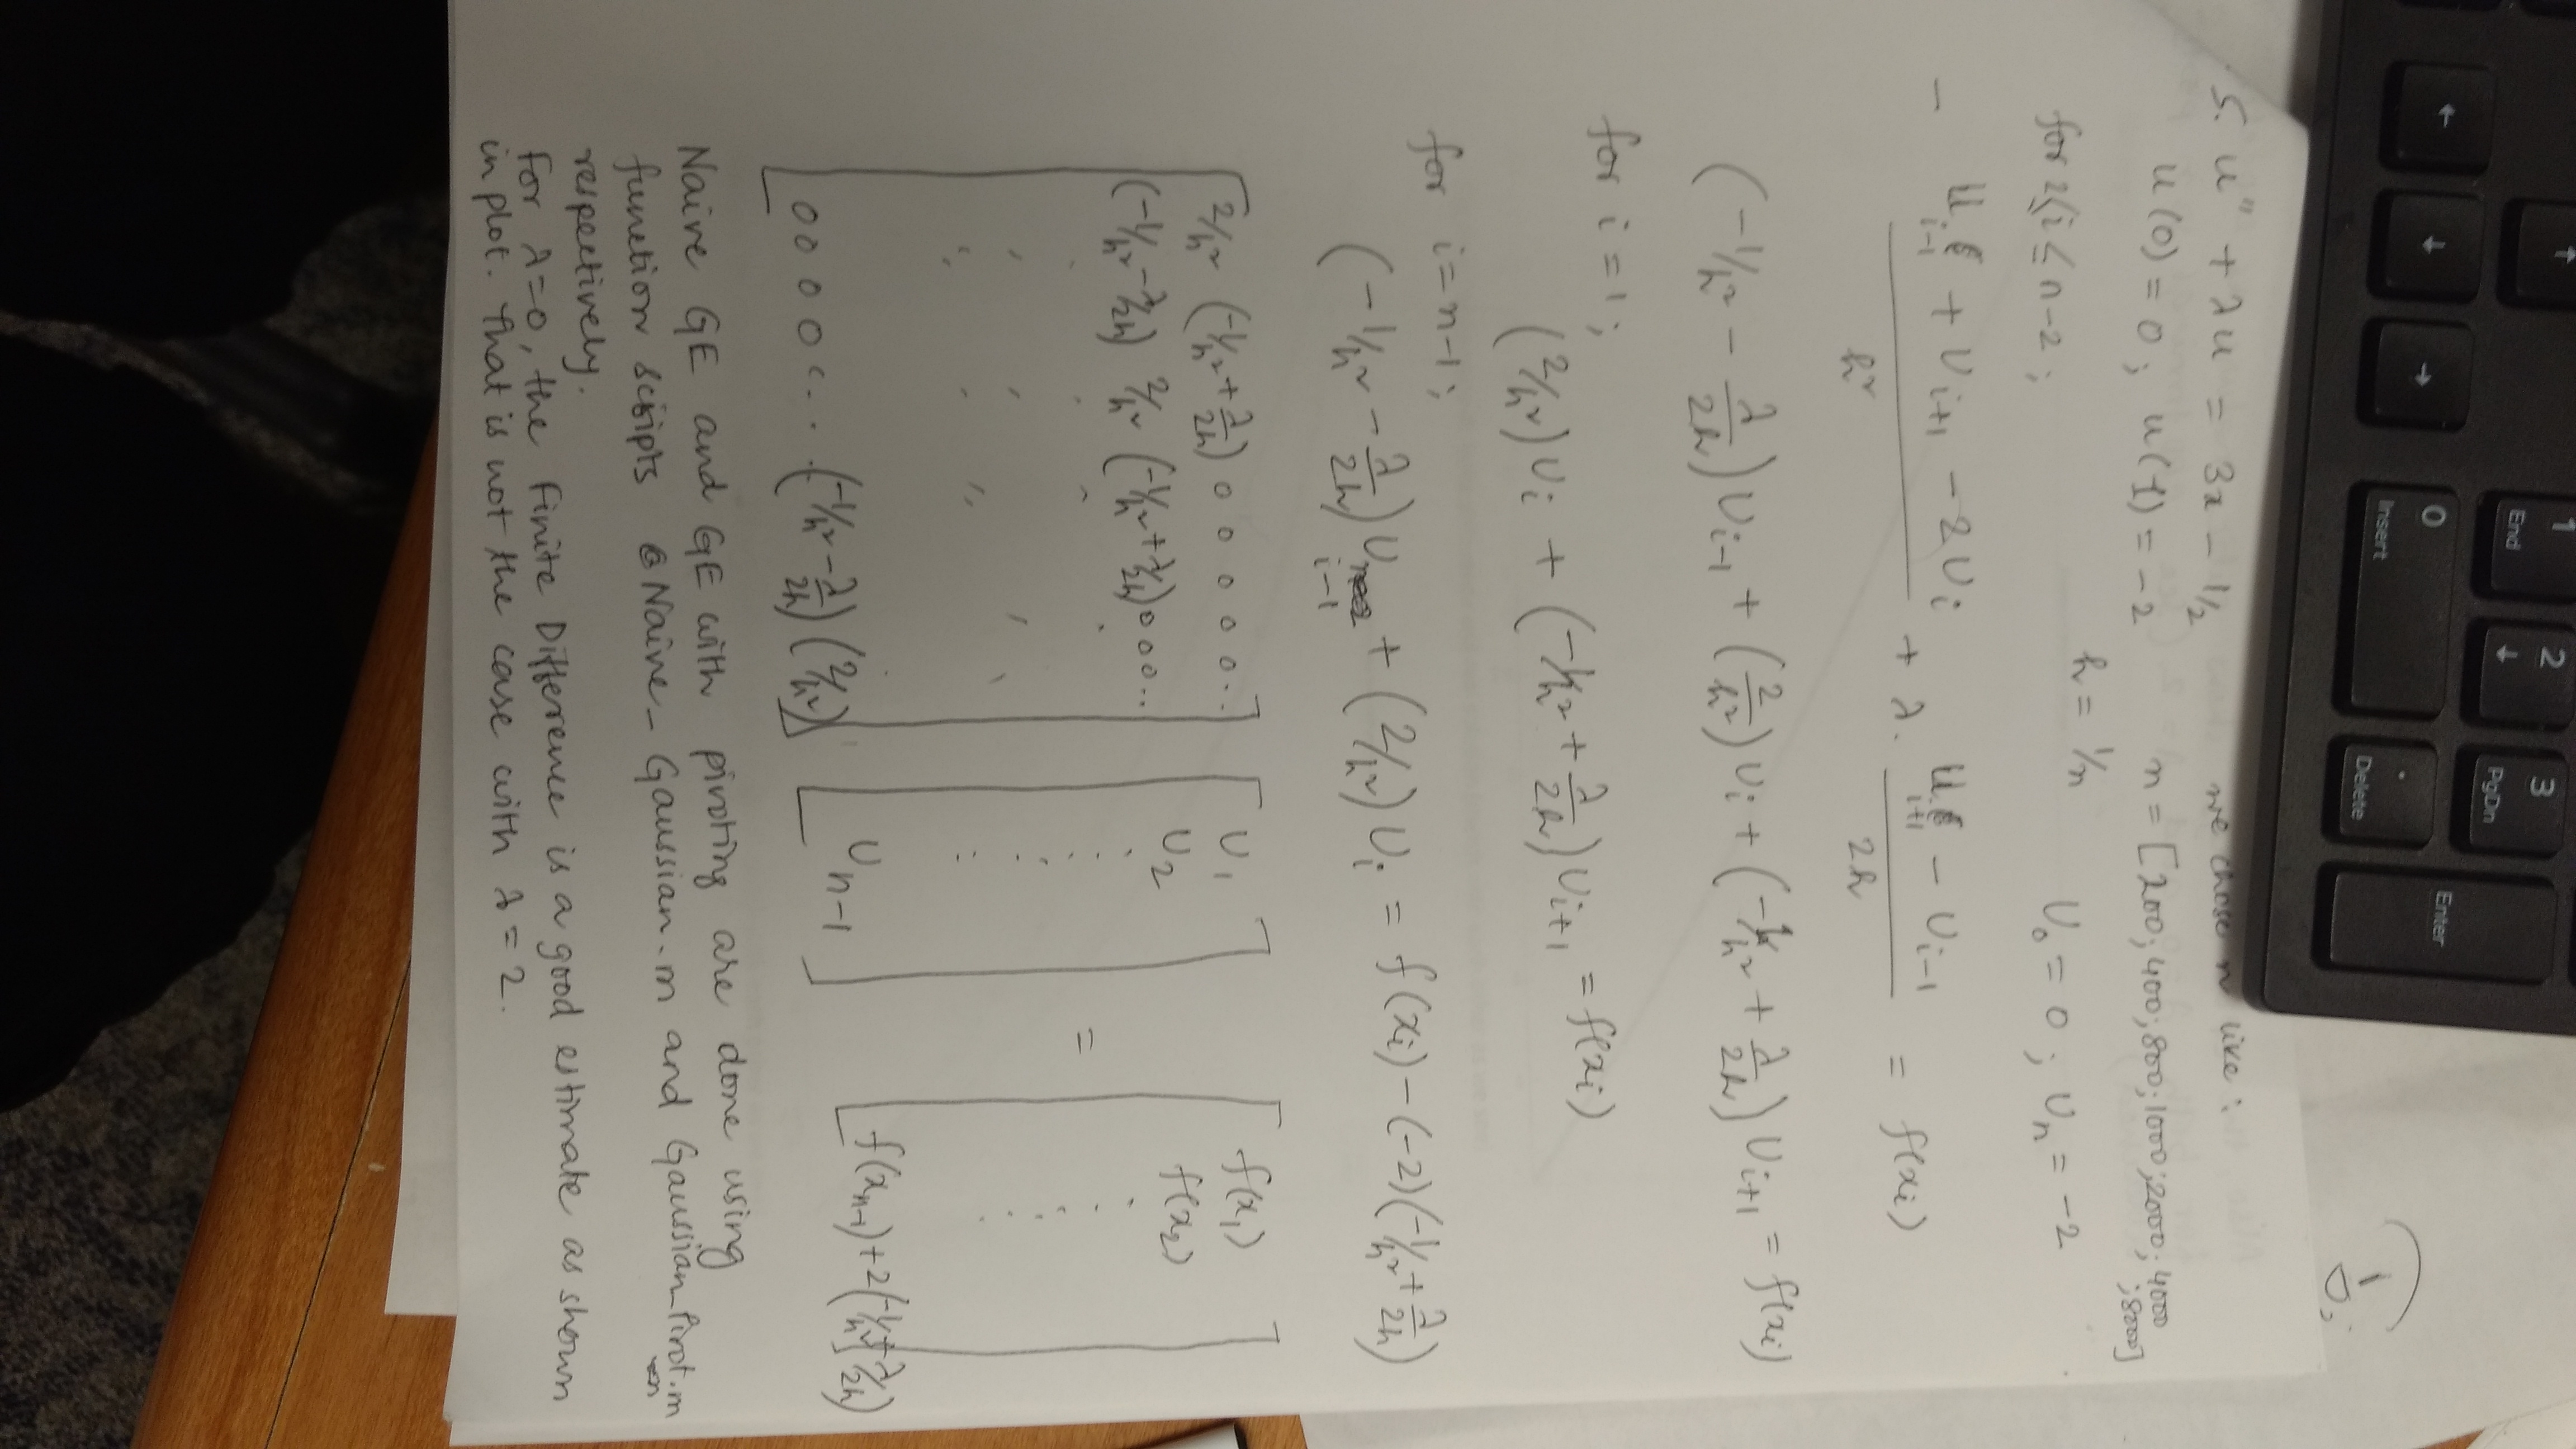 5. u'' + λu = 3x - 1/2 we chose n like:
u(0) = 0; u(1) = -2 n = [200; 400; 800; 1000; 2000; 4000
; 8000]
h = 1/n U₀ = 0; Uₙ = -2
for 2≤i≤n-2;
- (U_{i-1} + U_{i+1} - 2U_i)/h² + λ. (U_{i+1} - U_{i-1})/2h = f(x_i)
(-1/h² - λ/2h) U_{i-1} + (2/h²) U_i + (-1/h² + λ/2h) U_{i+1} = f(x_i)
for i=1;
(2/h²) U_i + (-1/h² + λ/2h) U_{i+1} = f(x_i)
for i=n-1;
(-1/h² - λ/2h) U_{i-1} + (2/h²) U_i = f(x_i) - (-2)(-1/h² + λ/2h)
[2/h² (-1/h² + λ/2h) 0 0 0 0 0... [U₁ f(x₁)
(-1/h² - λ/2h) 2/h² (-1/h² + λ/2h) 0 0 0... U₂ f(x₂)
=
0 0 0 0 ... (-1/h² - λ/2h) (2/h²)] U_{n-1}] f(x_{n-1}) + 2(-1/h² + λ/2h)]
Naive GE and GE with pivoting are done using
function scripts Naive_Gaussian.m and Gaussian_Pivot.m
respectively.
For λ=0, the Finite Difference is a good estimate as shown
in plot. That is not the case with λ = 2.
Enter
Delete
.
Insert
0
→
↓
←
PgDn
3
↓
2
End
1
↑